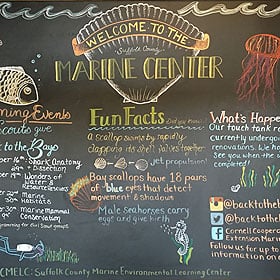 WELCOME TO THE
Suffolk County
MARINE CENTER
ming Events
Scouts give
to the Bays
Shark Anatomy
Dissection
Wonders of
Water &
Resources
Marine
Habitats
Marine Mammal
Conservation
Fun Facts
Did you know...
A scallop swims by rapidly
clapping its shell valves together
yet propulsion!
Bay scallops have 18 pairs
of "blue eyes that detect
movement & shadows
Male Seahorses carry
eggs and give birth
What's Happe
Our touch tank
currently undergo
renovations. We ho
See you when the
completed!
@backtotheb
@backtothe
Cornell Cooper
Extension Mar
For up to
information on
CMELC: Suffolk County Marine Environmental Learning Center